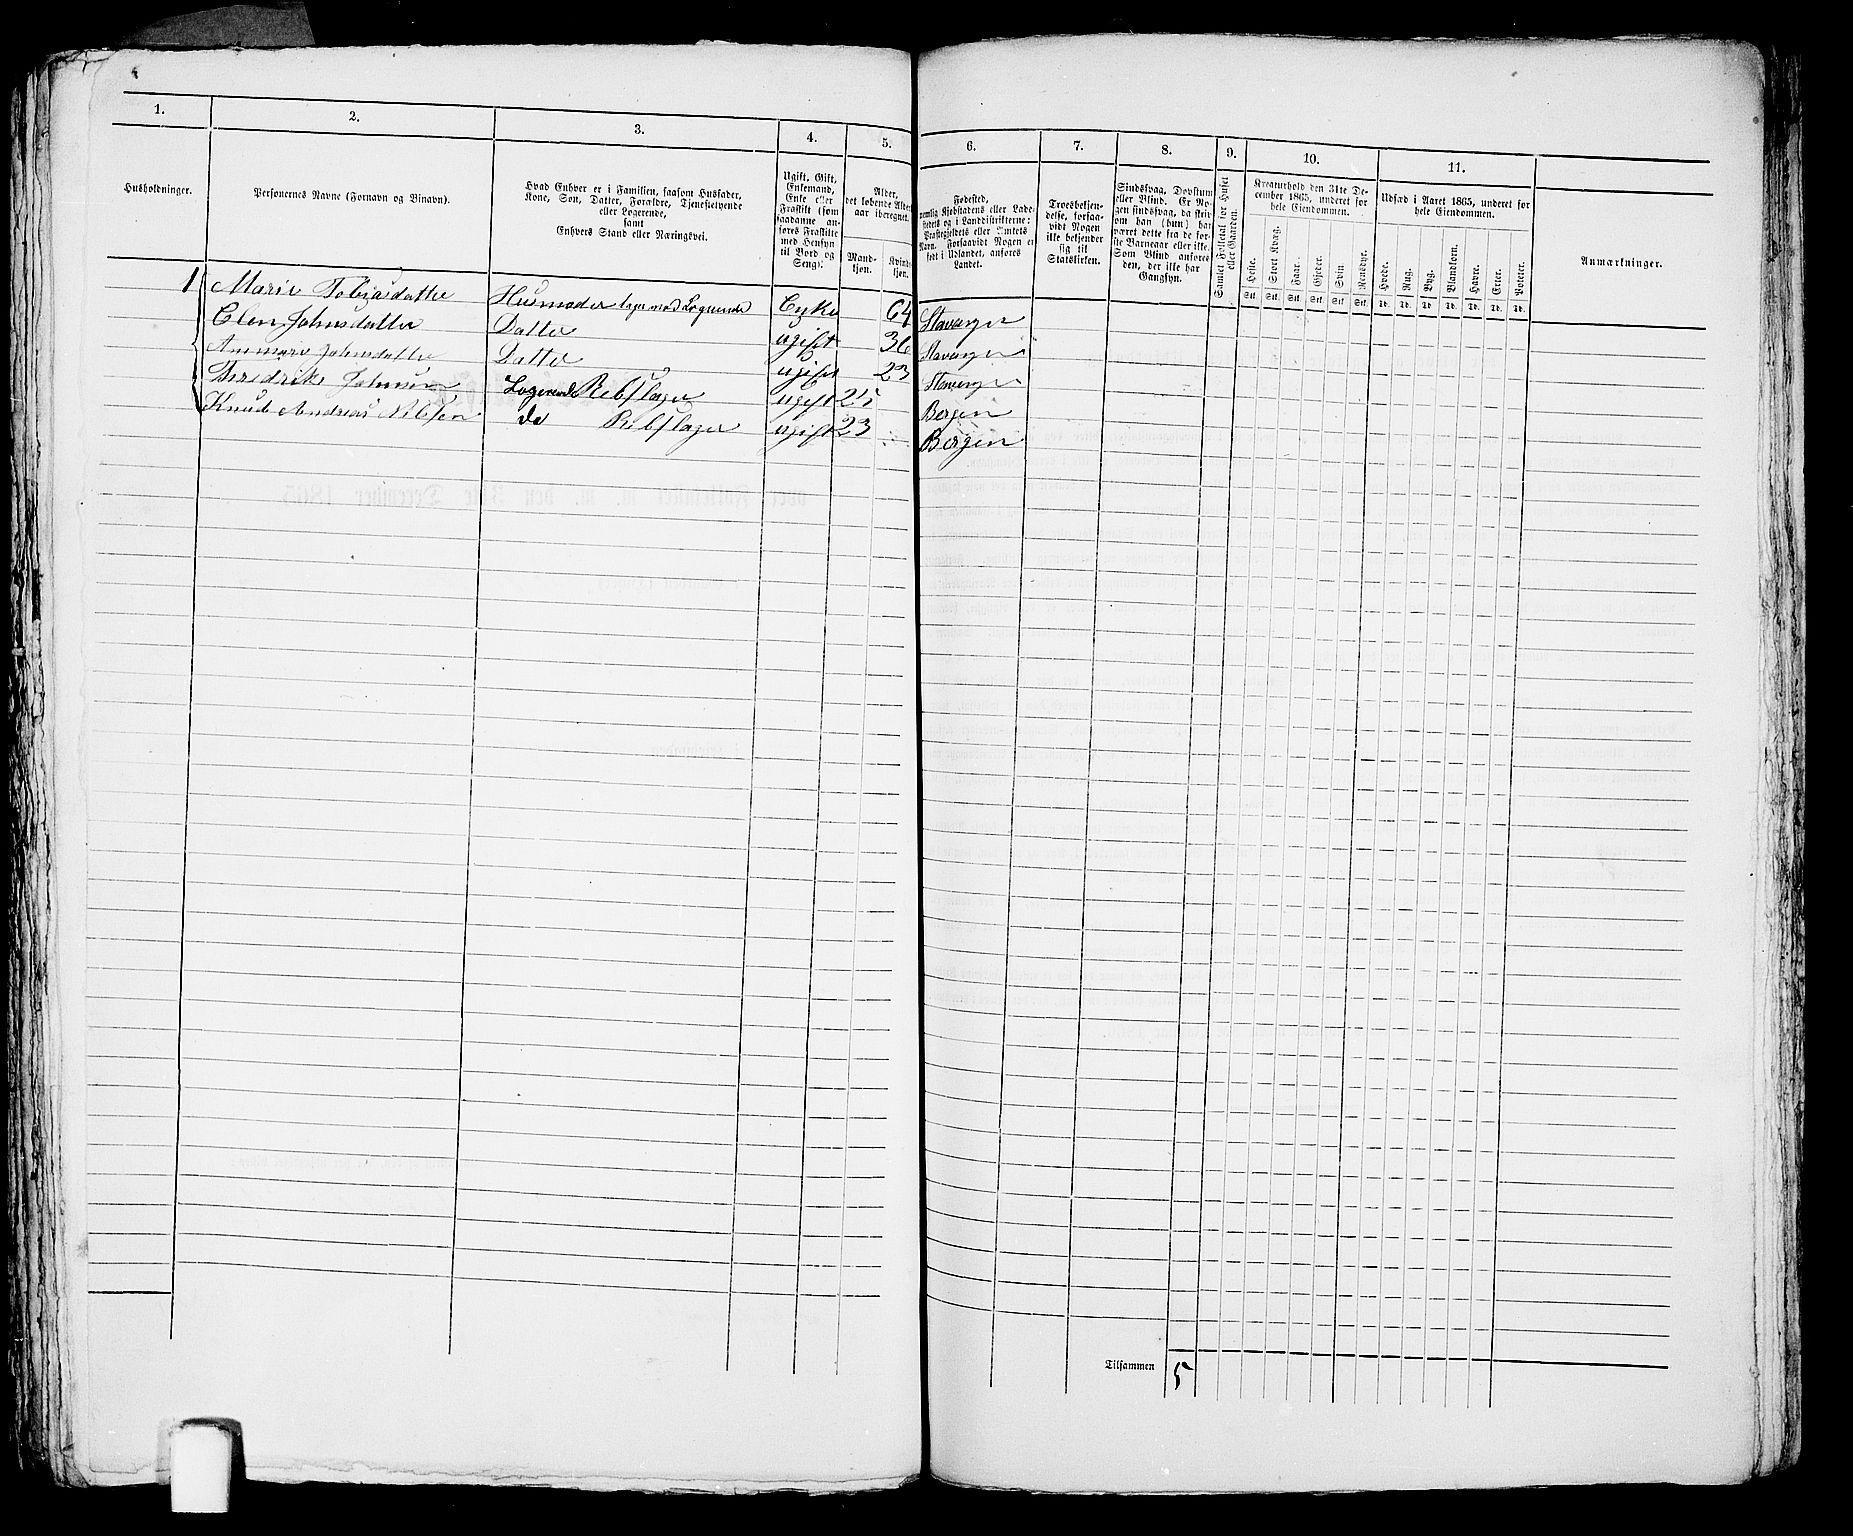 1.
2.
3.
4.
5.
6.
7.
8.
9.
10.
11.
Husholdninger.
Personernes Navne (Fornavn og Binavn).
Hvad Enhver er i Familien, saasom Husfader,
Kone, Søn, Datter, Forældre, Tjenestetyende
eller Logerende,
samt
Enhvers Stand eller Næringsvei.
Ugift, Gift,
Enkemand,
Enke eller
Fraskilt (som
saadanne an-
føres Fraskilte
med Hensyn
til Bord og
Seng).
Alder,
det løbende Alders-
aar iberegnet.
Mand-
kjøn.
Kvinde-
kjøn.
Fødested,
nemlig Kjøbstadens eller Lade-
stedets og i Landdistrikterne:
Præstegjeldets eller Amtets
Navn. Forsaavidt Nogen er
født i Udlandet, anføres
Landet.
Troesbekjen-
delse, forsaa-
vidt Nogen
ikke bekjender
sig til
Statskirken.
Sindssvag, Døvstum
eller Blind. Er No-
gen sindssvag, da skriv
om han (hun) har
været dette fra de før-
ste Barneaar eller ikke.
Som Blind anføres
den, der ikke har
Gangsyn.
Samlet Folketal for Huset
eller Gaarden.
Kreaturhold den 31te De-
cember 1865, underet for
hele Eiendommen.
Heste.
Stort Kvæg.
Faar.
Gjeder.
Svin
Rensdyr.
Stk. Stk. Stk. Stk. Stk. Stk.
Udsæd i Aaret 1865, underet for
hele Eiendommen.
Hvede.
Rug.
Byg.
Blandkorn.
Havre.
Erter.
Poteter.
Td. Td. Td. Td. Td. Td. Td.
Anmærkninger.
1 Marie Tobiasdatter Husmoder Logerende Enke 64 Stavanger
Elen Johnsdatter Datter ugift 36 Stavanger
Anmarie Johnsdatter Datter ugift 23 Stavanger
Fredrik Johnsen Logerende Rebslager ugift 25 Bergen
Knud Andreas Nilsen do Rebslager ugift 23 Bergen
Tilsammen 5